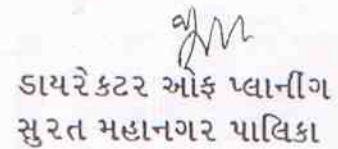 ડાયરેકટર ઓફ પ્લાનીંગ
સુરત મહાનગર પાલિકા